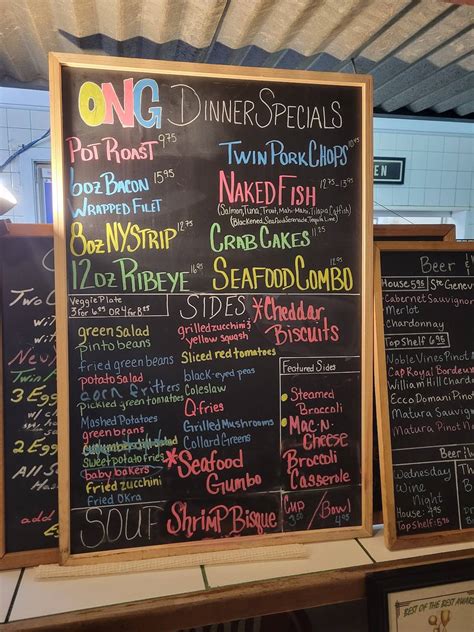 ONG DINNER SPECIALS
POT ROAST 9.75
6oz BACON WRAPPED FILET 15.95
8oz NY STRIP 12.75
12oz RIBEYE 16.95
TWIN PORK CHOPS 10.95
NAKED FISH 12.75-13.95
(Salmon, Tuna, Trout, Mahi Mahi, Tilapia, Catfish)
(Blackened, Seafood Serenade, Tequila Lime)
CRAB CAKES 11.25
SEAFOOD COMBO
Veggie Plate
3 for 6.95 OR 4 for 8.25
SIDES
green salad
pinto beans
fried green beans
potato salad
corn fritters
Pickled green tomatoes
Mashed Potatoes
green beans
cucumber dill salad
Sweet potato fries
baby bakers
Fried zucchini
Fried Okra
grilled zucchini &
yellow squash
Sliced red tomatoes
black-eyed peas
Coleslaw
Q-fries
Grilled Mushrooms
Collard Greens
*Seafood
Gumbo
*Cheddar
Biscuits
Featured Sides
Steamed
Broccoli
Mac-N-
Cheese
Broccoli
Casserole
SOUP Shrimp Bisque
Cup / Bowl
4.95
Two
with
New
Twin
3 Egg
2 Egg
All S
add
Beer &
House 5.25
Cabernet Sauvignon
Merlot
Chardonnay
Top Shelf 6.95
Noble Vines Pinot
Cap Royal Bordeaux
William Hill Chard
Ecco Domani Pinot
Matura Sauvignon
Matura Pinot
Wednesday
Wine
Night
House: 4.95
Top Shelf: 5.95
EN
BEST OF THE BEST AWARD